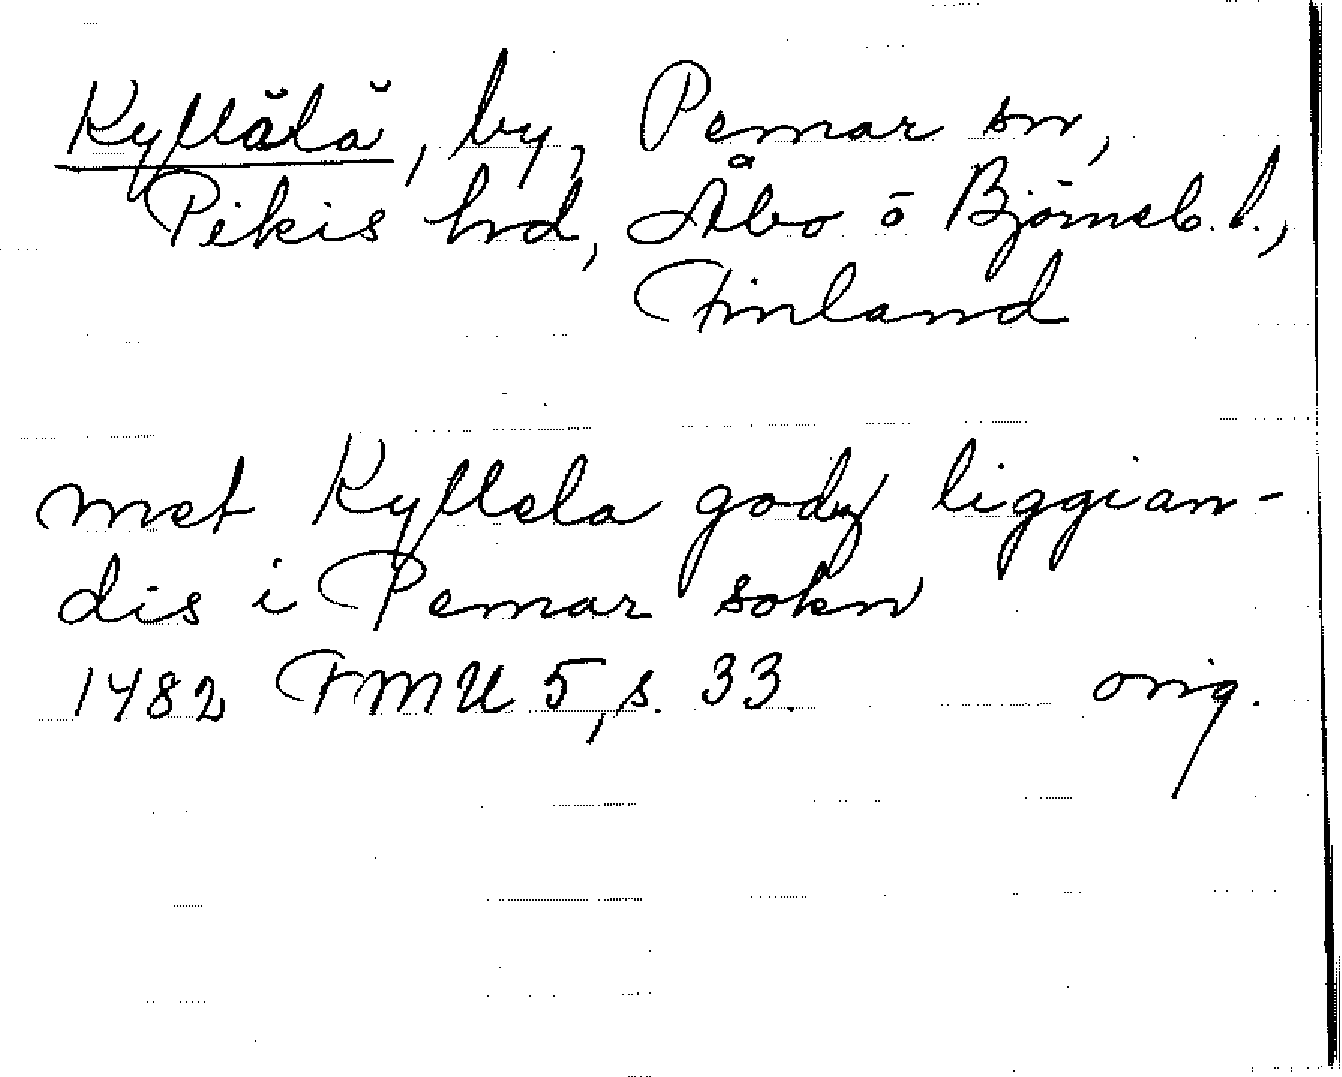 Kyllälä, by, Pemar sn,
Pikis hrd, Åbo o Björneb. l.,
Finland
met Kyllela godz liggian-
dis i Pemar sokn
1482 FMU 5, s. 33. orig.